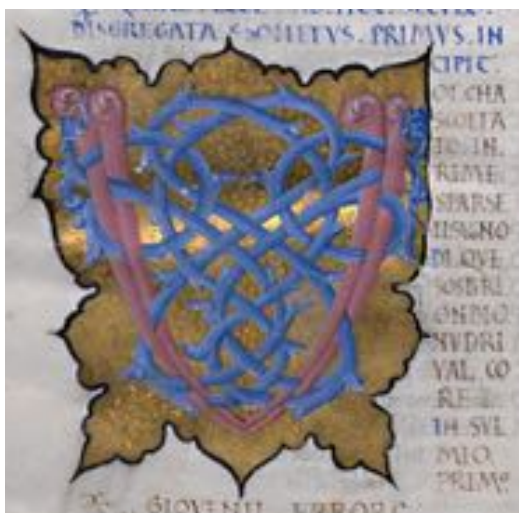 DISGREGATA SONETVS. PRIMVS. IN
CIPIT
OI. CHA
SCOLTA
TO. IN.
RIME.
SPARSE
IL SVONO
DI. QVE
SOSPIRI
ON DIO
NVDRI
VAL. CO
RE I
IN SVL
MIO.
PRIMO
GIOVENIL ERRORE